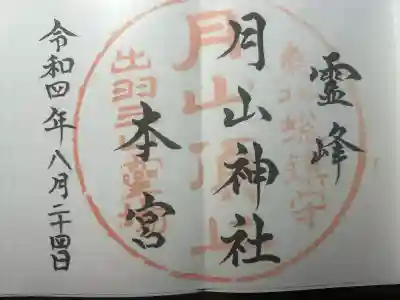 霊峰
月山神社
本宮
令和四年八月二十四日
月山頂上